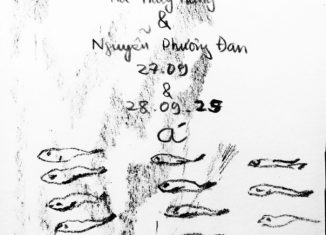 &
Nguyễn Phương Đan
27.09
&
28.09.25
á